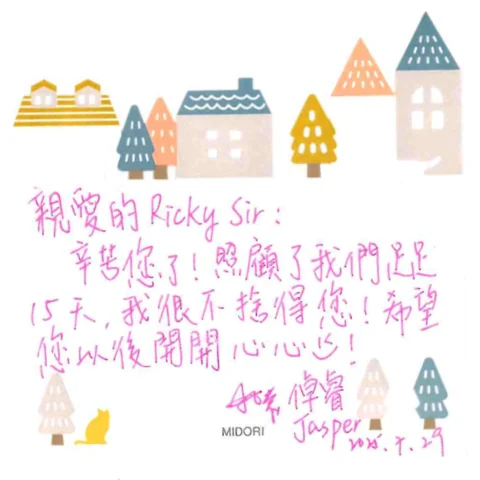 親愛的 Ricky Sir：
辛苦您了！照顧了我們足足
15天，我很不捨得您！希望
您以後開開心心！
倬睿
MIDORI
Jasper
2025.7.29